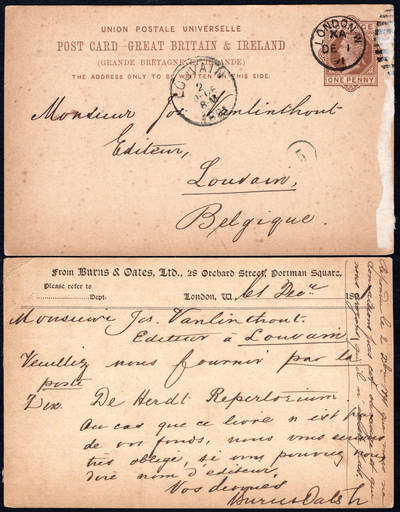 UNION POSTALE UNIVERSELLE
POST CARD–GREAT BRITAIN & IRELAND
(GRANDE BRETAGNE ET IRLANDE)
THE ADDRESS ONLY TO BE WRITTEN ON THIS SIDE.
LONDON·W
KA
DE 1
91
ONE PENNY
LOUVAIN
2
Monsieur Jos. Vanlinthout
Editeur,
5
Louvain,
Belgique.
From Burns & Oates, Ltd., 28 Orchard Street, Portman Square,
Please refer to
Dept.
London, W. 1st Decr 1891
Monsieur Jos. Vanlinthout.
Editeur à Louvain
Veuillez nous fournir par la
poste
De Herdt Repertorium.
Au cas que ce livre n'est pas
de vos fonds, nous vous serons
très obligé, si vous pouvez
dire nom d'éditeur,
Vos dévoués
Burns Oates